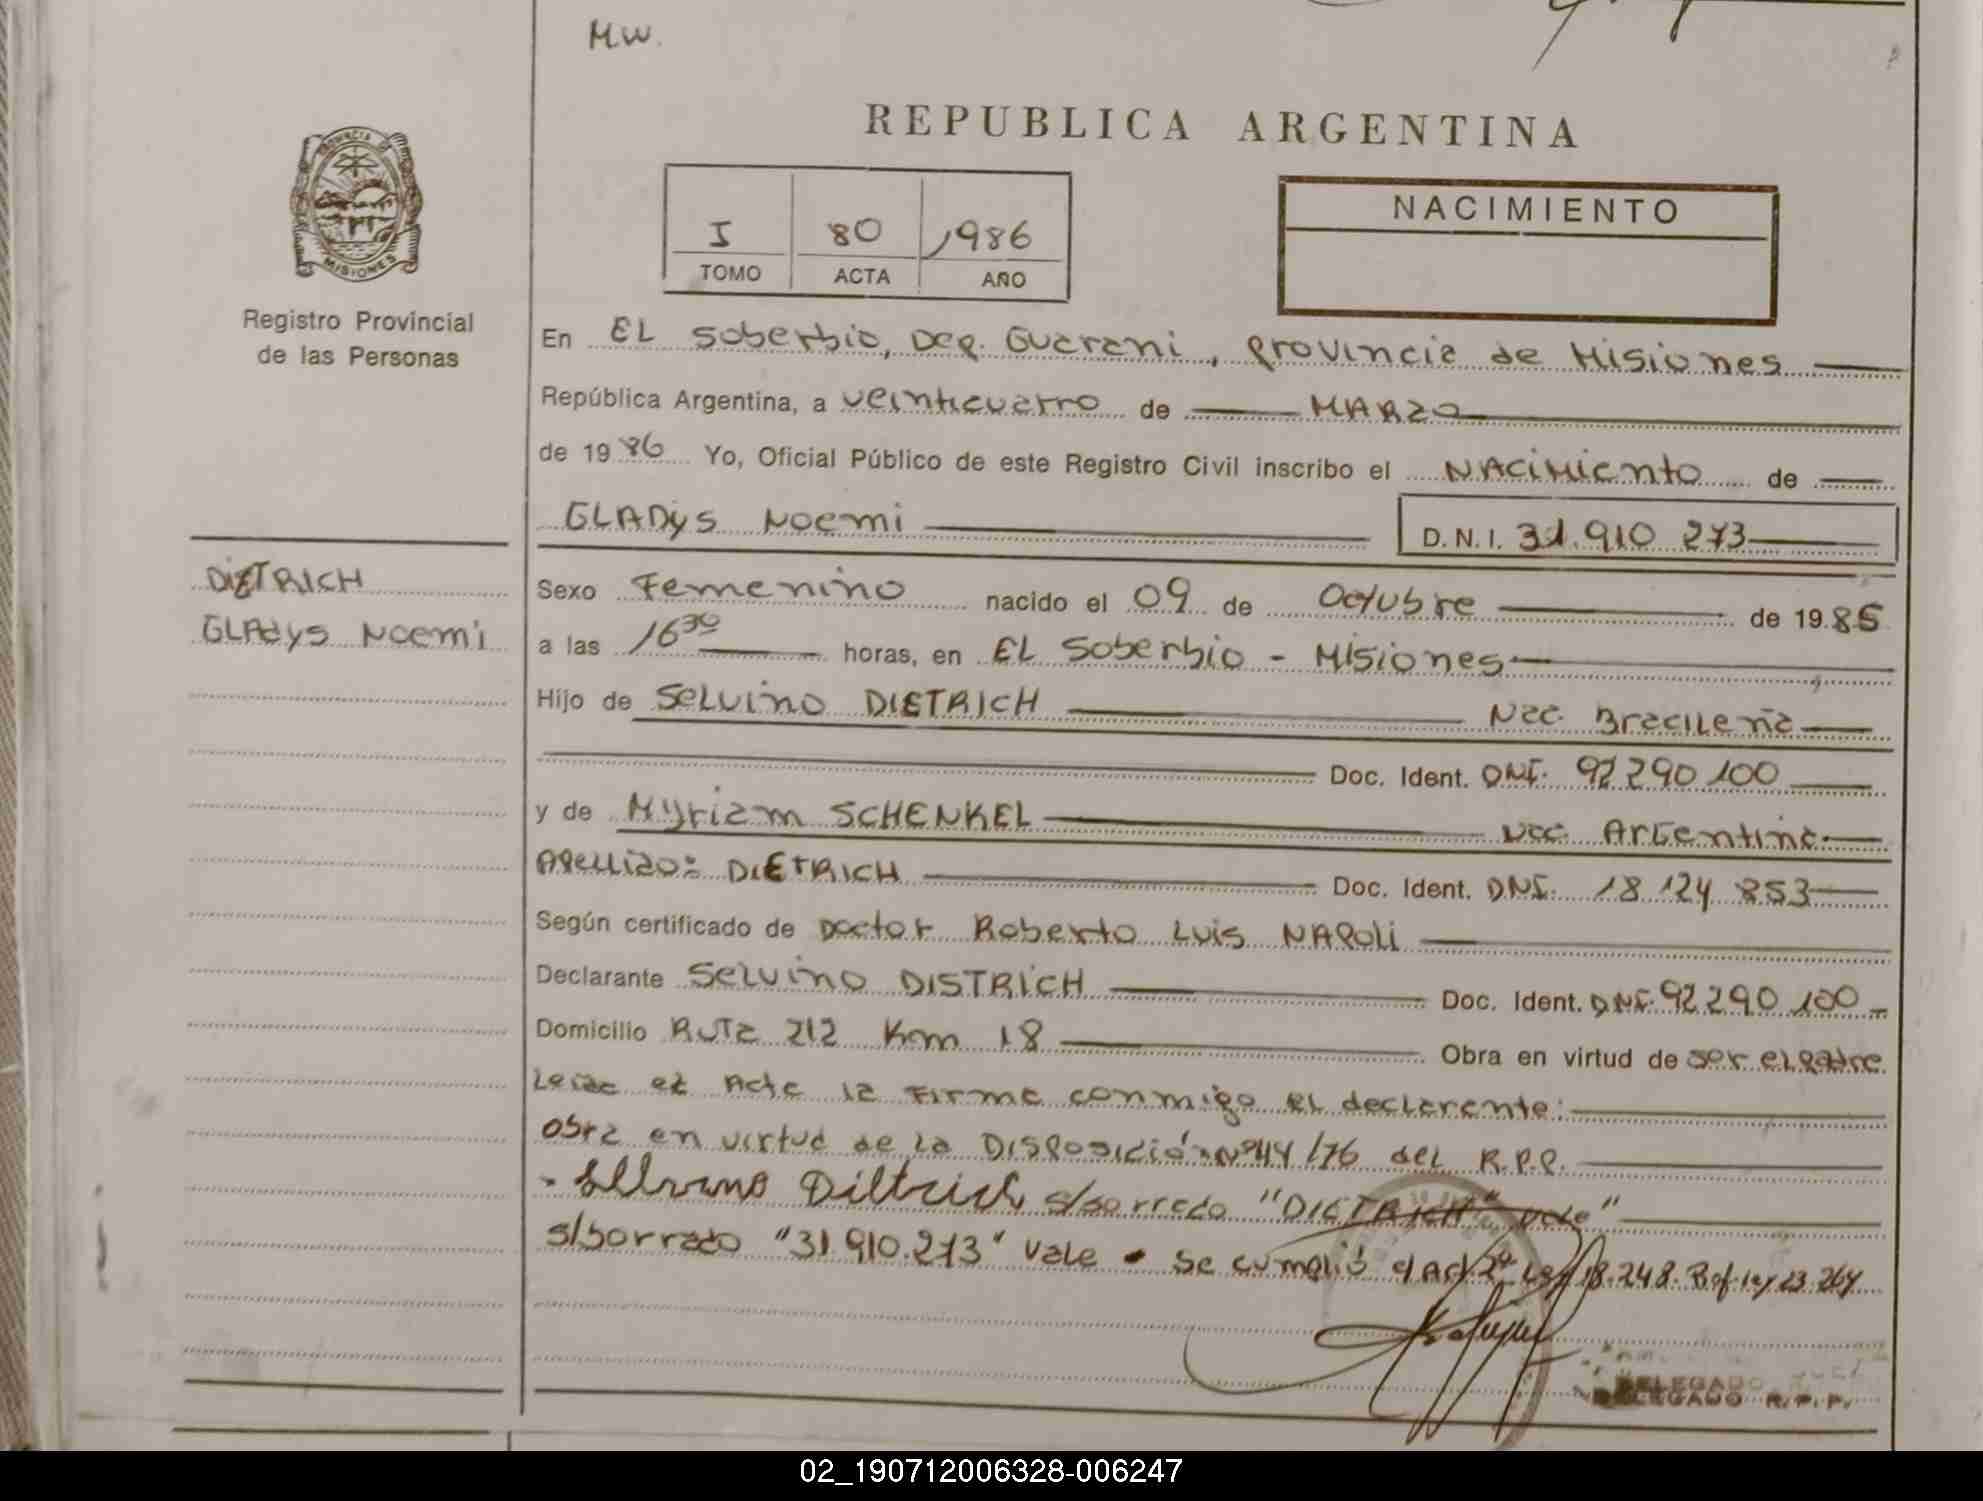 M.W.
REPUBLICA ARGENTINA
PROVINCIA DE
MISIONES
Registro Provincial
de las Personas
I 80 1986
TOMO ACTA AÑO
NACIMIENTO
En EL Soberbio, Dep. Guarani, provincia de Misiones
República Argentina, a veinticuatro de MARZO
de 1986 Yo, Oficial Público de este Registro Civil inscribo el NACIMIENTO de
GLADYS NOEMI D.N.I. 31.910 273
DIETRICH
GLADYS NOEMI
Sexo Femenino nacido el 09 de Octubre de 1985
a las 16 30 horas, en EL Soberbio - Misiones
Hijo de Selvino DIETRICH Nac. Bracileña
Doc. Ident. DNI. 92 290 100
y de Myriam SCHENKEL Nac. Argentina
Apellido: DIETRICH Doc. Ident. DNI. 18.124 853
Según certificado de Doctor Roberto Luis NAPOLI
Declarante Selvino DISTRICH Doc. Ident. DNI. 92 290 100
Domicilio Ruta 212 Km 18 Obra en virtud de ser el padre
Leida el Acta la firma conmigo el declarante:
obra en virtud de la Disposición Nº 44/76 del R.P.P.
s/borrado "DIETRICH" vale"
s/borrado "31.910.273" Vale • Se cumplió c/Art 2º Ley 18.248. Ref. ley 23.264
DELEGADO R.P.P.
02_190712006328-006247